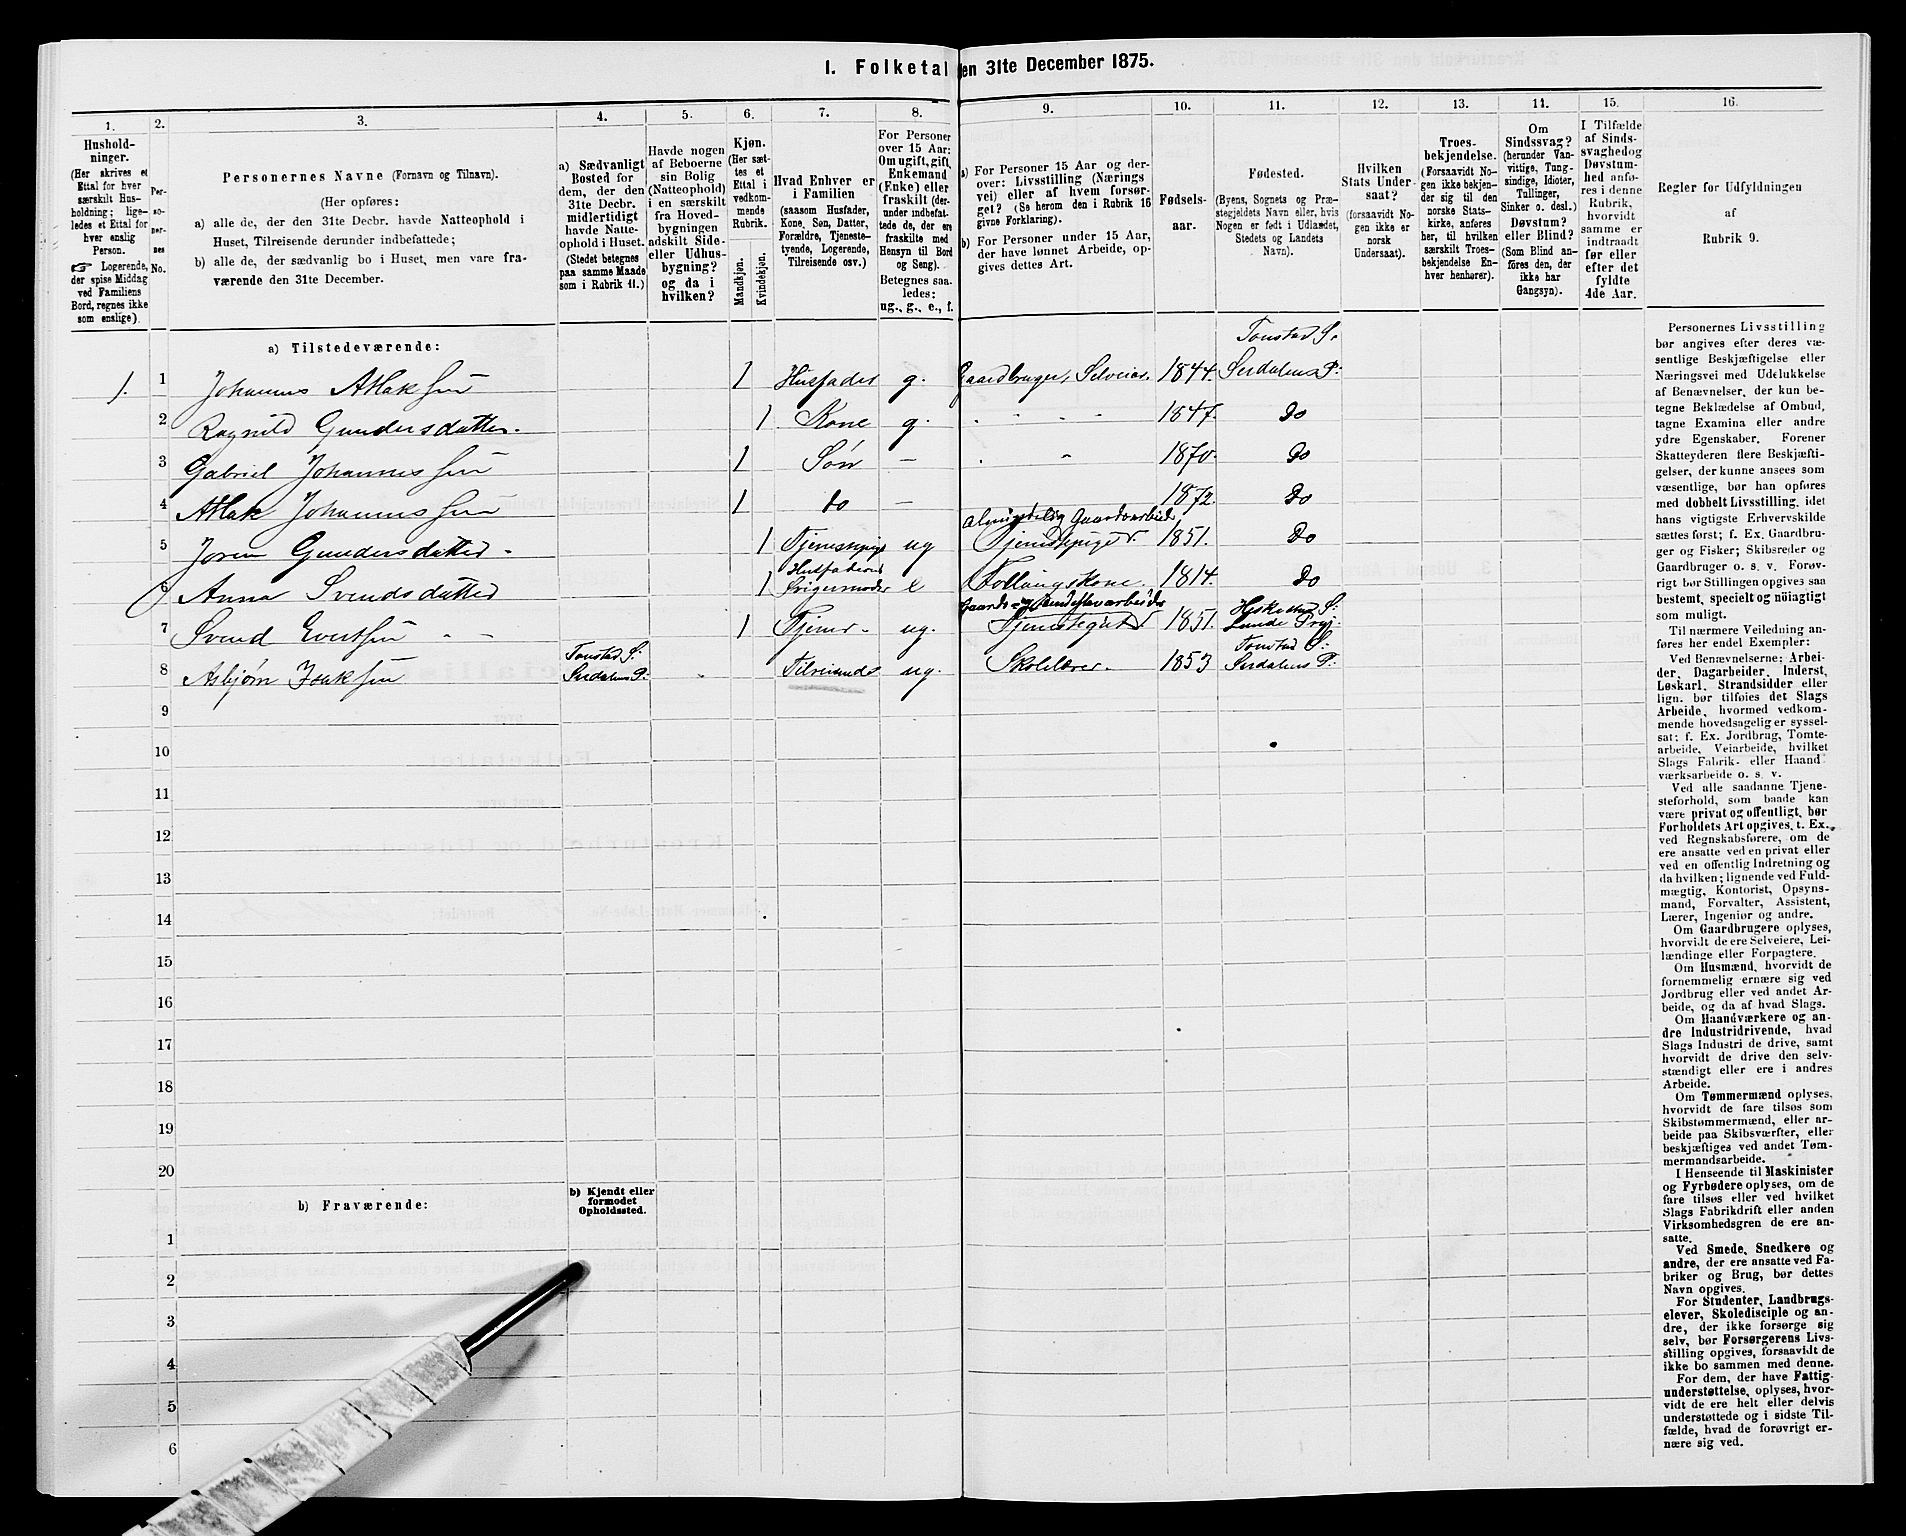 I. Folketal den 31te December 1875.
1.
Hushold-
ninger.
(Her skrives et
Ettal for hver
særskilt Hus-
holdning; lige-
ledes et Ettal for
hver enslig
Person.
☞ Logerende,
der spise Middag
ved Familiens
Bord, regnes ikke
som enslige).
2.
Per-
so-
ner-
nes
No.
3.
Personernes Navne (Fornavn og Tilnavn).
(Her opføres:
a) alle de, der den 31te Decbr. havde Natteophold i
Huset, Tilreisende derunder indbefattede;
b) alle de, der sædvanlig bo i Huset, men vare fra-
værende den 31te December.
4.
a) Sædvanligt
Bosted for
dem, der den
31te Decbr.
midlertidigt
havde Natte-
ophold i Huset.
(Stedet betegnes
paa samme Maade
som i Rubrik 11.)
5.
Havde nogen
af Beboerne
sin Bolig
(Natteophold)
i en særskilt
fra Hoved-
bygningen
adskilt Side-
eller Udhus-
bygning?
og da i
hvilken?
6.
Kjøn.
(Her sæt-
tes et
Ettal i
vedkom-
mende
Rubrik.
Mandkjøn.
Kvindekjøn.
7.
Hvad Enhver er
i Familien
(saasom Husfader,
Kone, Søn, Datter,
Forældre, Tjeneste-
tyende, Logerende,
Tilreisende osv.)
8.
For Personer
over 15 Aar:
Om ugift, gift,
Enkemand
(Enke) eller
fraskilt (der-
under indbefat-
tede de, der ere
fraskilte med
Hensyn til Bord
og Seng).
Betegnes saa-
ledes:
ug., g., e., f.
9.
a) For Personer 15 Aar og der-
over: Livsstilling (Nærings
vei) eller af hvem forsør-
get? (Se herom den i Rubrik 16
givne Forklaring).
b) For Personer under 15 Aar,
der have lønnet Arbeide, op-
gives dettes Art.
10.
Fødsels-
aar.
11.
Fødested.
(Byens, Sognets og Præ-
stegjeldets Navn eller, hvis
Nogen er født i Udlandet,
Stedets og Landets
Navn).
12.
Hvilken
Stats Under-
saat?
(forsaavidt No-
gen ikke er
norsk
Undersaat).
13.
Troes-
bekjendelse.
(Forsaavidt No-
gen ikke bekjen-
der sig til den
norske Stats-
kirke, anføres
her, til hvilken
særskilt Troes-
bekjendelse En-
hver henhører).
14.
Om
Sindssvag?
(herunder Van-
vittige, Tung-
sindige, Idioter,
Tullinger,
Sinker o. desl.)
Døvstum?
eller Blind?
(Som Blind an-
føres den, der
ikke har
Gangsyn).
15.
I Tilfælde
af Sinds-
svaghed og
Døvstum-
hed anfø-
res i denne
Rubrik,
hvorvidt
samme er
indtraadt
før eller
efter det
fyldte
4de Aar.
16.
Regler for Udfyldningen
af
Rubrik 9.
a) Tilstedeværende:
Tonstad S.
1. 1 Johannes Atlaksen 1 Husfader g. Gaardbruger, Selveier. 1844. Sirdalens P:
2 Ragnild Gundersdatter. 1 Kone g. " " " 1847. Do
3 Gabriel Johannessen 1 Søn – " " 1870. Do
4 Atlak Johannessen 1 do – 1872. Do
almindelig Gaardsarbeid
5 Joren Gundersdatter. 1 Tjenestepige ug Tjenestepige 1851. Do
Husfaderens
6 Anna Svendsdatter 1 Svigermoder e Follaugskone. 1814. Do
Gaards- og
Heskestad S:
7 Svend Evertsen " " 1 Tjener. ug. Tjenestegut 1851. Lunde Prgj.
Tonstad S: Tonstad S:
8 Asbjørn Isaksen Sirdalens P: Tilreisende ug. Skolelærer. 1853 Sirdalens P:
9
10
11
12
13
14
15
16
17
18
19
20
b) Fraværende:
b) Kjendt eller
formodet
Opholdssted.
1
2
3
4
5
6
Personernes Livsstilling
bør angives efter deres væ-
sentlige Beskjæftigelse eller
Næringsvei med Udelukkelse
af Benævnelser, der kun be-
tegne Beklædelse af Ombud,
tagne Examina eller andre
ydre Egenskaber. Forener
Skatteyderen flere Beskjæfti-
gelser, der kunne ansees som
væsentlige, bør han opføres
med dobbelt Livsstilling, idet
hans vigtigste Erhvervskilde
sættes først; f. Ex. Gaardbru-
ger og Fisker; Skibsreder og
Gaardbruger o. s. v. Forøv-
rigt bør Stillingen opgives saa
bestemt, specielt og nøiagtigt
som muligt.
Til nærmere Veiledning an-
føres her endel Exempler:
Ved Benævnelserne: Arbei-
der, Dagarbeider, Inderst,
Løskarl, Strandsidder eller
lign. bør tilføies det Slags
Arbeide, hvormed vedkom-
mende hovedsagelig er syssel-
sat; f. Ex. Jordbrug, Tomte-
arbeide, Veiarbeide, hvilket
Slags Fabrik- eller Haand
værksarbeide o. s. v.
Ved alle saadanne Tjene-
steforhold, som baade kan
være privat og offentligt, bør
Forholdets Art opgives, t. Ex.
ved Regnskabsførere, om de
ere ansatte ved en privat eller
ved en offentlig Indretning og
da hvilken; lignende ved Fuld-
mægtig, Kontorist, Opsyns-
mand, Forvalter, Assistent,
Lærer, Ingeniør og andre.
Om Gaardbrugere oplyses,
hvorvidt de ere Selveiere, Lei-
lændinge eller Forpagtere.
Om Husmænd, hvorvidt de
fornemmelig ernære sig ved
Jordbrug eller ved andet Ar-
beide, og da af hvad Slags.
Om Haandværkere og an-
dre Industridrivende, hvad
Slags Industri de drive, samt
hvorvidt de drive den selv-
stændigt eller ere i andres
Arbeide.
Om Tømmermænd oplyses,
hvorvidt de fare tilsøs som
Skibstømmermænd, eller ar-
beide paa Skibsværfter, eller
beskjæftiges ved andet Tøm-
mermandsarbeide.
I Henseende til Maskinister
og Fyrbødere oplyses, om de
fare tilsøs eller ved hvilket
Slags Fabrikdrift eller anden
Virksomhedsgren de ere an-
satte.
Ved Smede, Snedkere og
andre, der ere ansatte ved Fa-
briker og Brug, bør dettes
Navn opgives.
For Studenter, Landbrugs-
elever, Skoledisciple og an-
dre, der ikke forsørge sig
selv, bør Forsørgerens Livs-
stilling opgives, forsaavidt de
ikke bo sammen med denne.
For dem, der have Fattig-
understøttelse, oplyses, hvor-
vidt de ere helt eller delvis
understøttede og i sidste Til-
fælde, hvad de forøvrigt er-
nære sig ved.